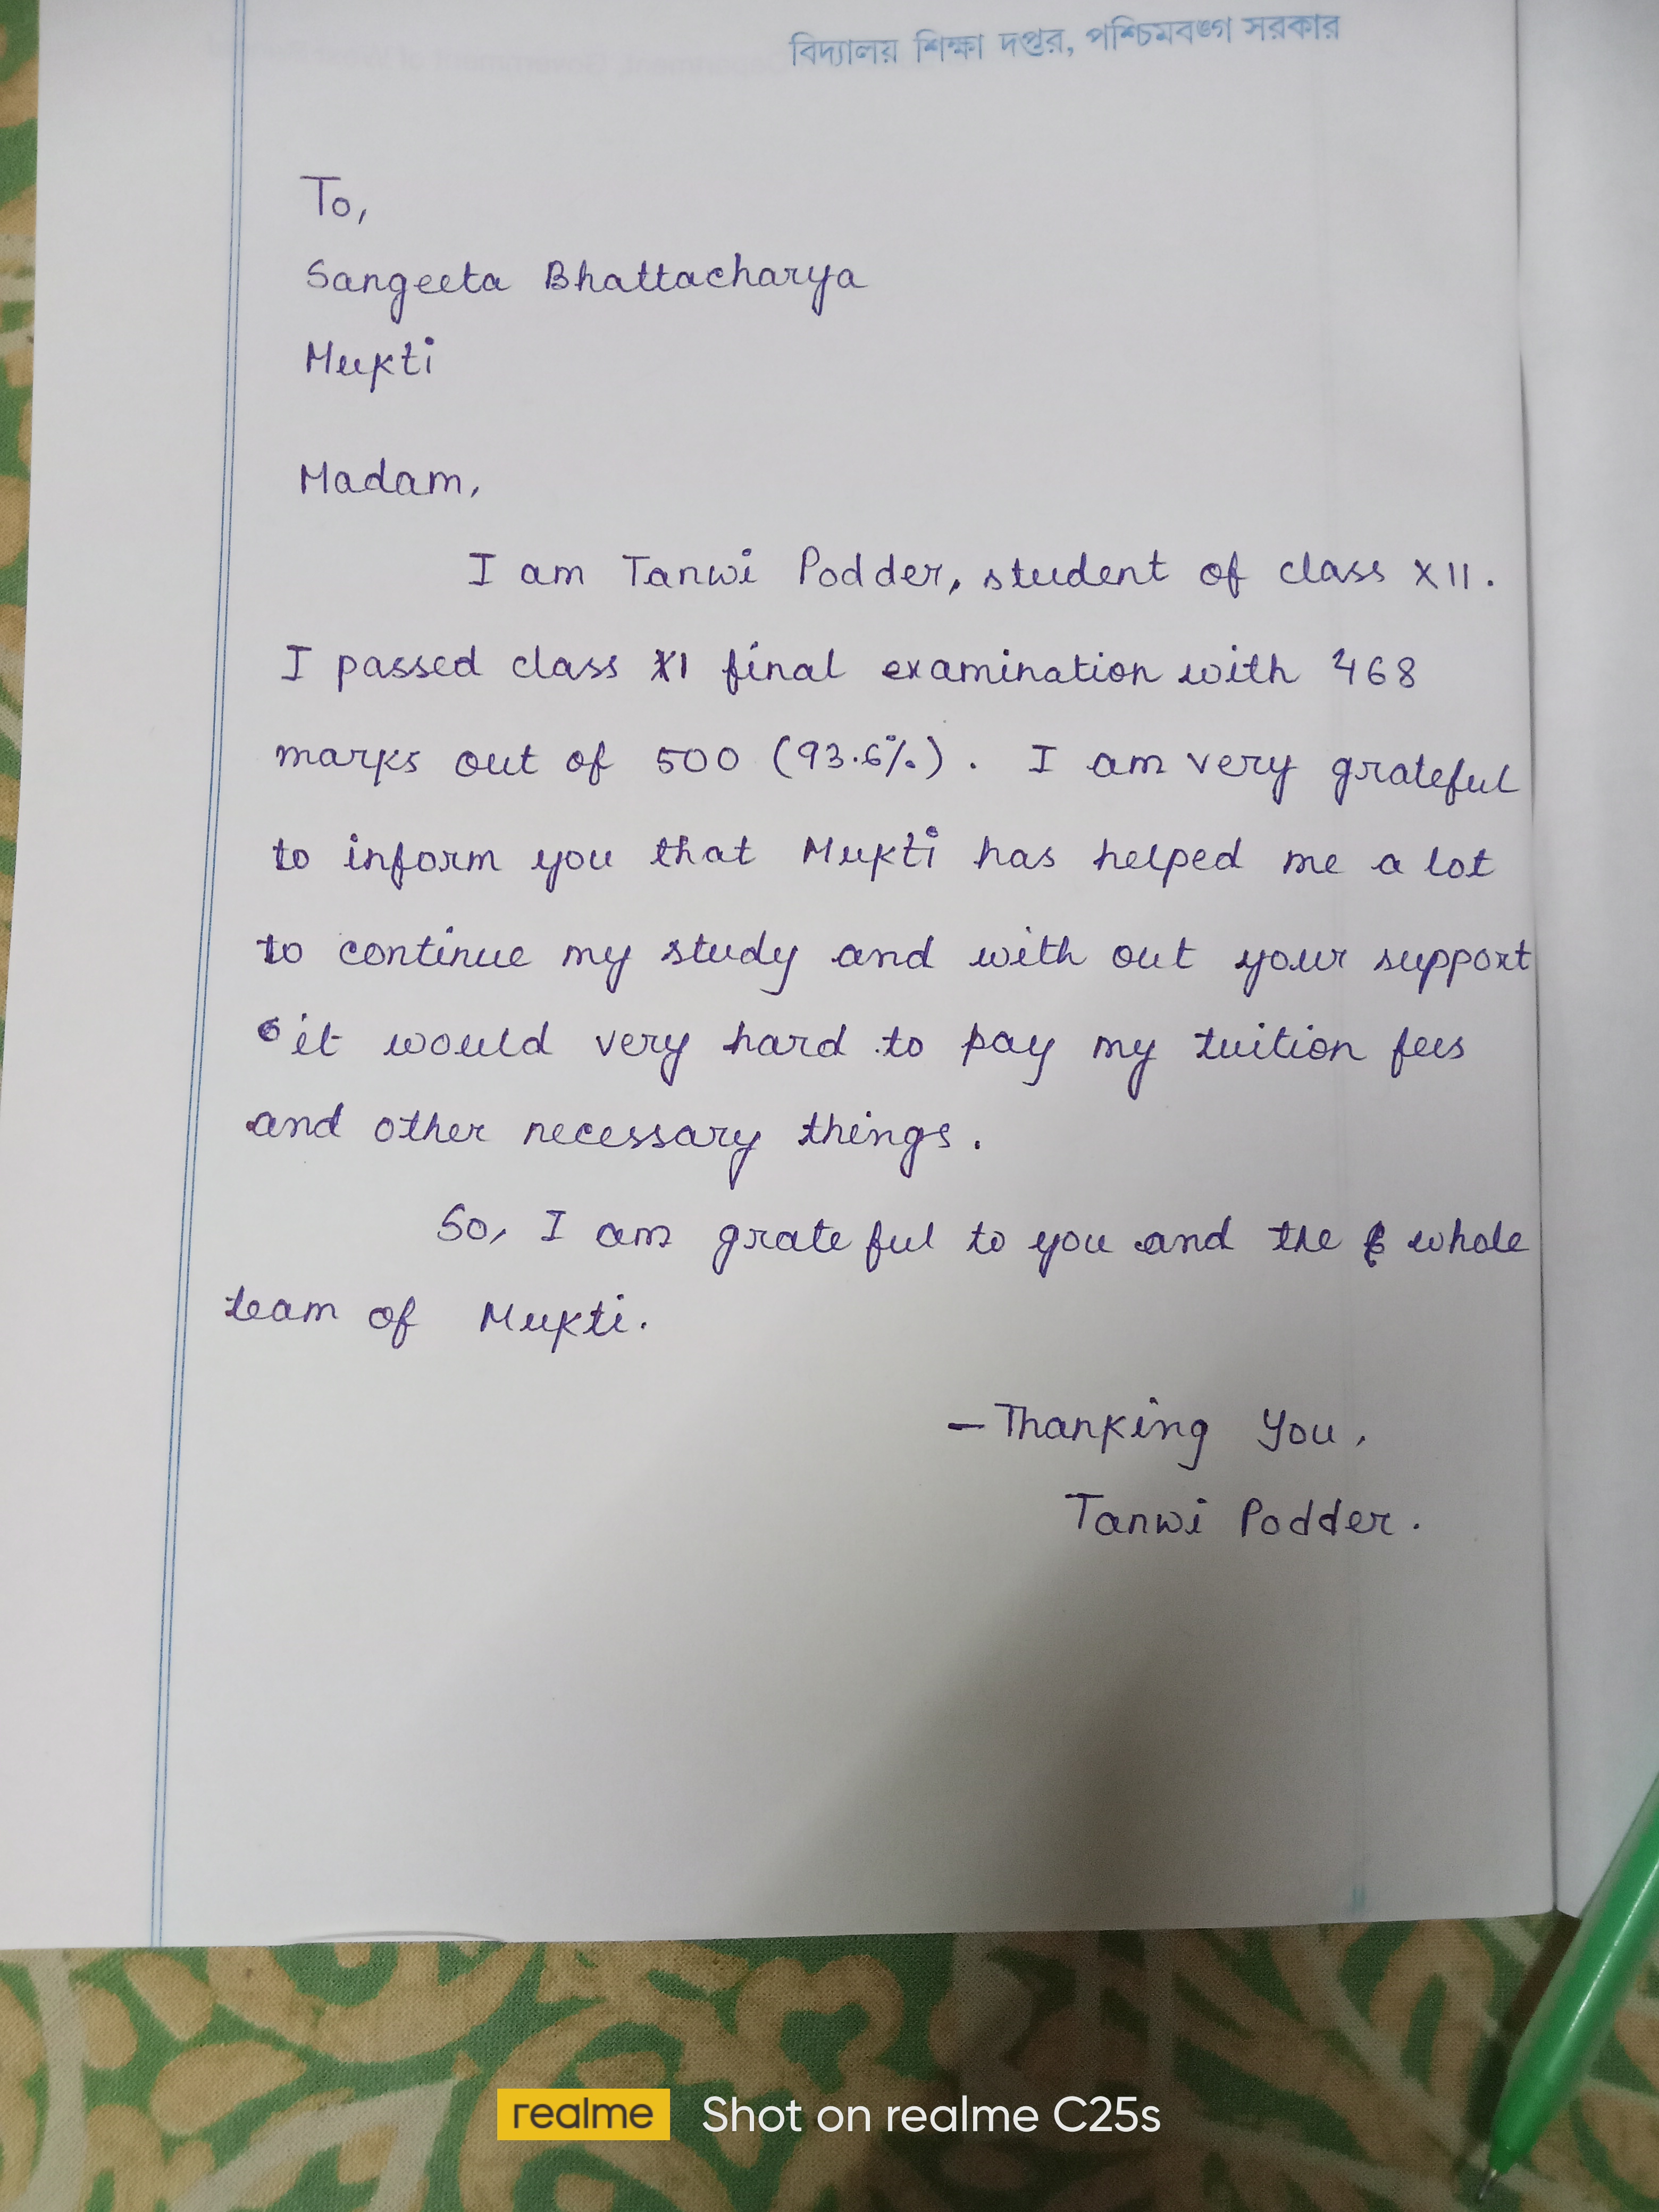 বিদ্যালয় শিক্ষা দপ্তর, পশ্চিমবঙ্গ সরকার
To,
Sangeeta Bhattacharya
Mukti
Madam,
I am Tanwi Podder, student of class XII.
I passed class XI final examination with 468
marks out of 500 (93.6%). I am very grateful
to inform you that Mukti has helped me a lot
to continue my study and with out your support
it would very hard to pay my tuition fees
and other necessary things.
So, I am grateful to you and the whole
team of Mukti.
— Thanking You,
Tanwi Podder.
realme Shot on realme C25s